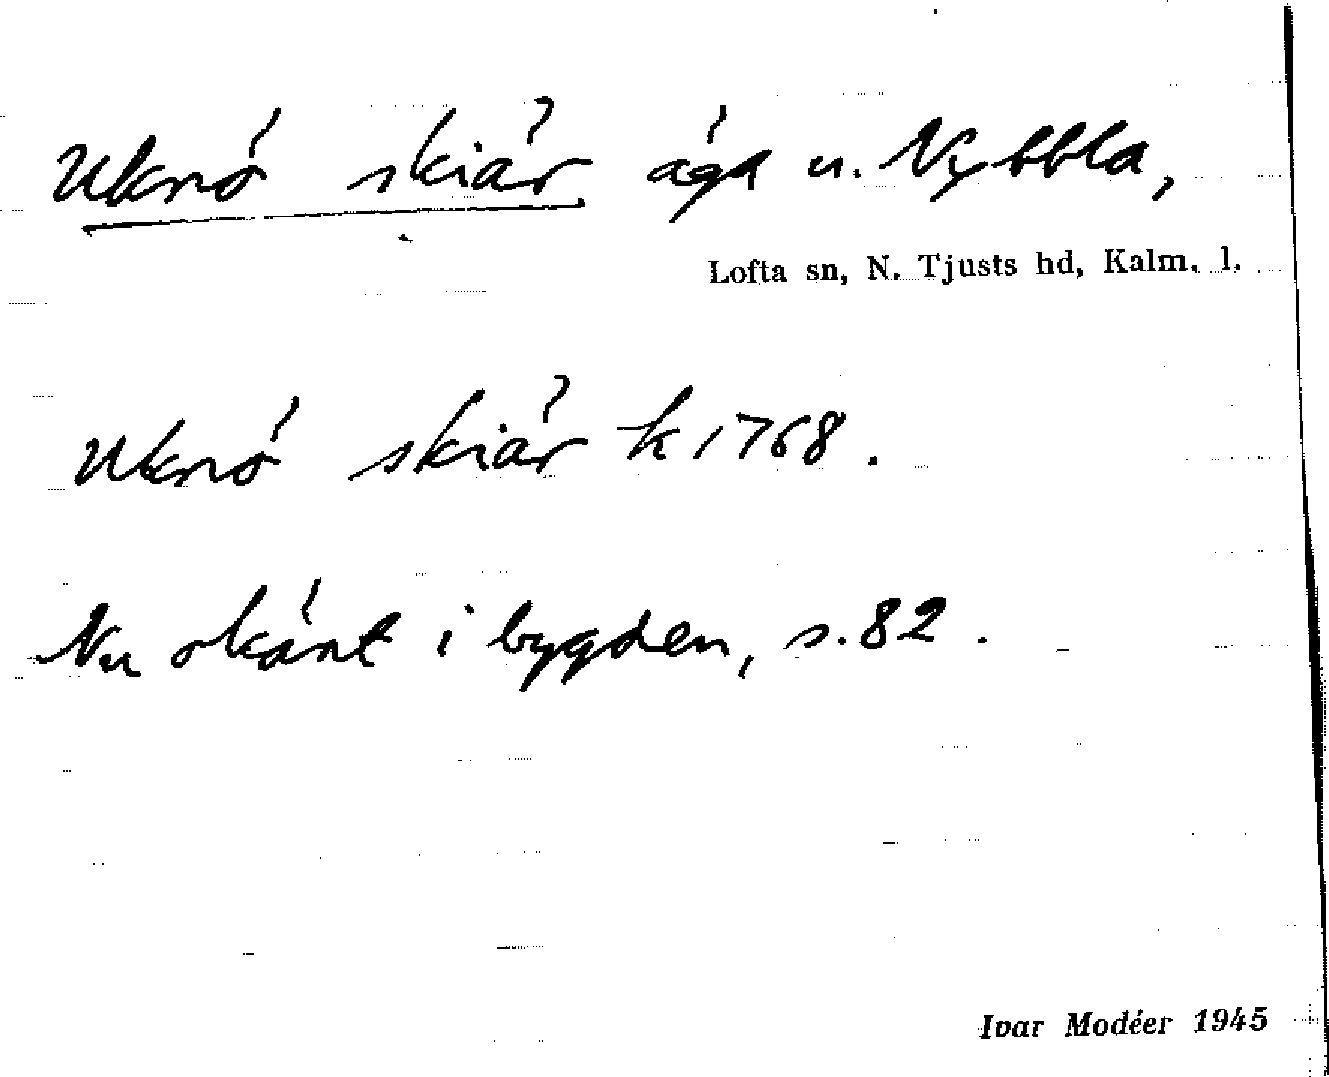 Uknö skiär äga u. Nybbla,
Lofta sn, N. Tjusts hd, Kalm. l.
Uknö skiär k 1768.
Nu okänt i bygden, s. 82.
Ivar Modéer 1945